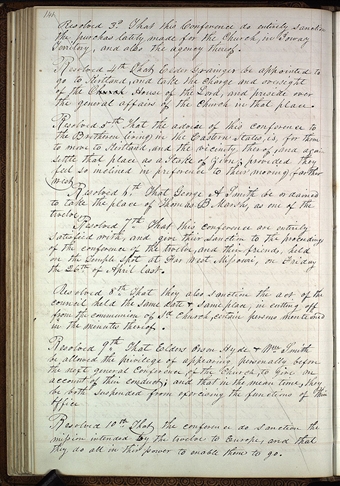 141
Resolved 3d. That this Conference do entirely sanction
the purchas lately made for the Church, in Ioway
Territory, and also the agency thereof.
Resolved 4th That Elder Grainger be appointed to
go to Kirtland, and take the charge and oversight
of the House of the Lord, and preside over
the general affairs of the Church in that place.
Resolved 5th That the advise of this conference to
the Brethren living in the Eastern States, is, for them
to move to Kirtland, and the vicinity thereof, and again
settle that place as a Stake of Zion; provided they
feel so inclined in preference to their moving farther
west.
Resolved 6th That George A Smith be ordained
to take the place of Thomas B. Marsh, as one of the
twelve.
Resolved 7th That this conference are entirely
satisfied with, and give their sanction to the proceedings
of the conference of the twelve, and their friends, held
on the Temple Spot at Far West, Missouri, on Friday
the 26th of April last.
Resolved 8th That they also sanction the act of the
council held the same date & same place, in cutting off
from the communion of sd. church, certain persons mentioned
in the minutes thereof.
Resolved 9th That Elders Orson Hyde & Wm Smith
be allowed the privilege of appearing personally before
the next general Conference of the Church, to give an
account of their conduct; and that in the mean time, they
be both suspended from exercising the functions of their
office
Resolved 10th That the conference do sanction the
mission intended by the twelve to Europe, and that
they do all in their power to enable them to go.